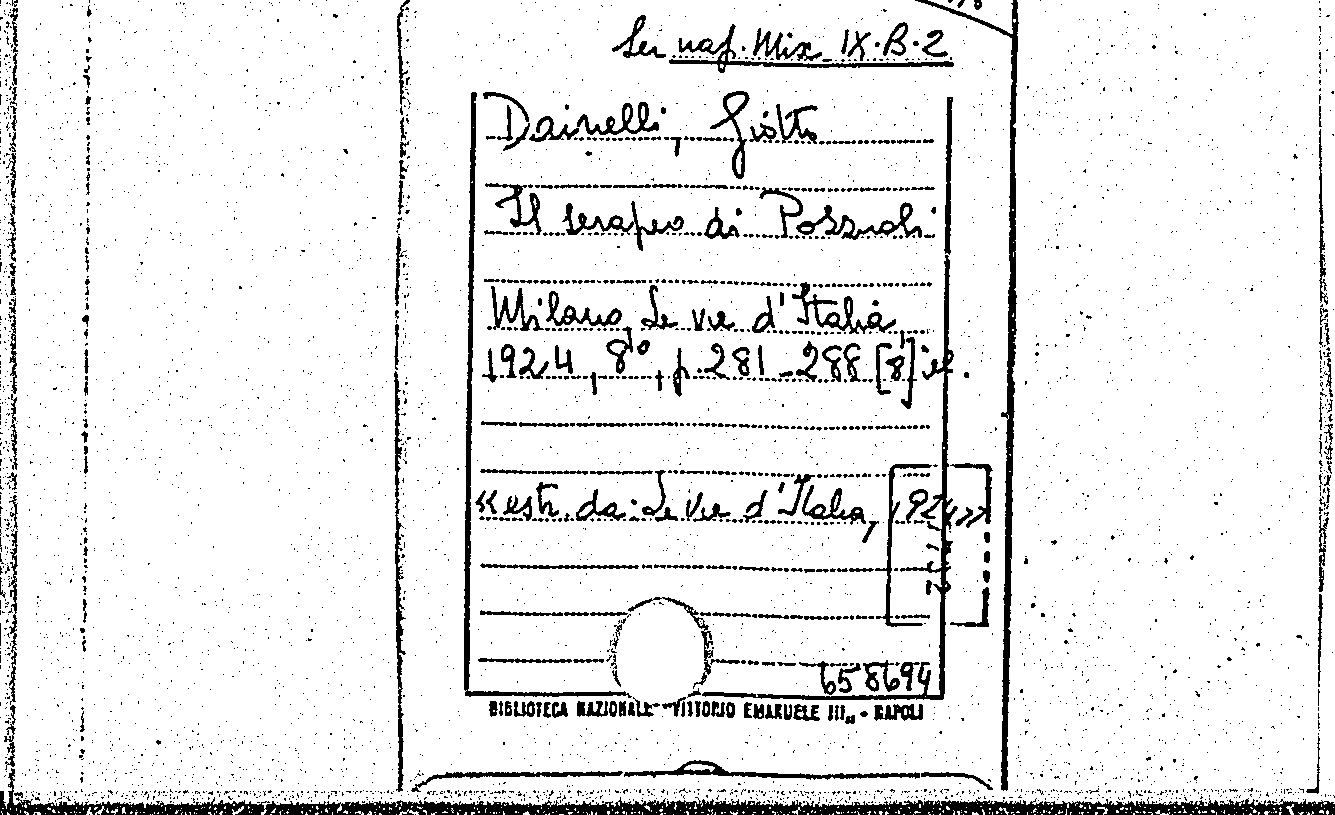 Ser naf. Mix IX.B.2
Dainelli, Giotto
Il serapeo di Pozzuoli
Milano, Le vie d'Italia,
1924, 8°, p. 281-288 [8] ill.
«estr. da: Le vie d'Italia, 1924»
658694
BIBLIOTECA NAZIONALE - VITTORIO EMANUELE III - NAPOLI